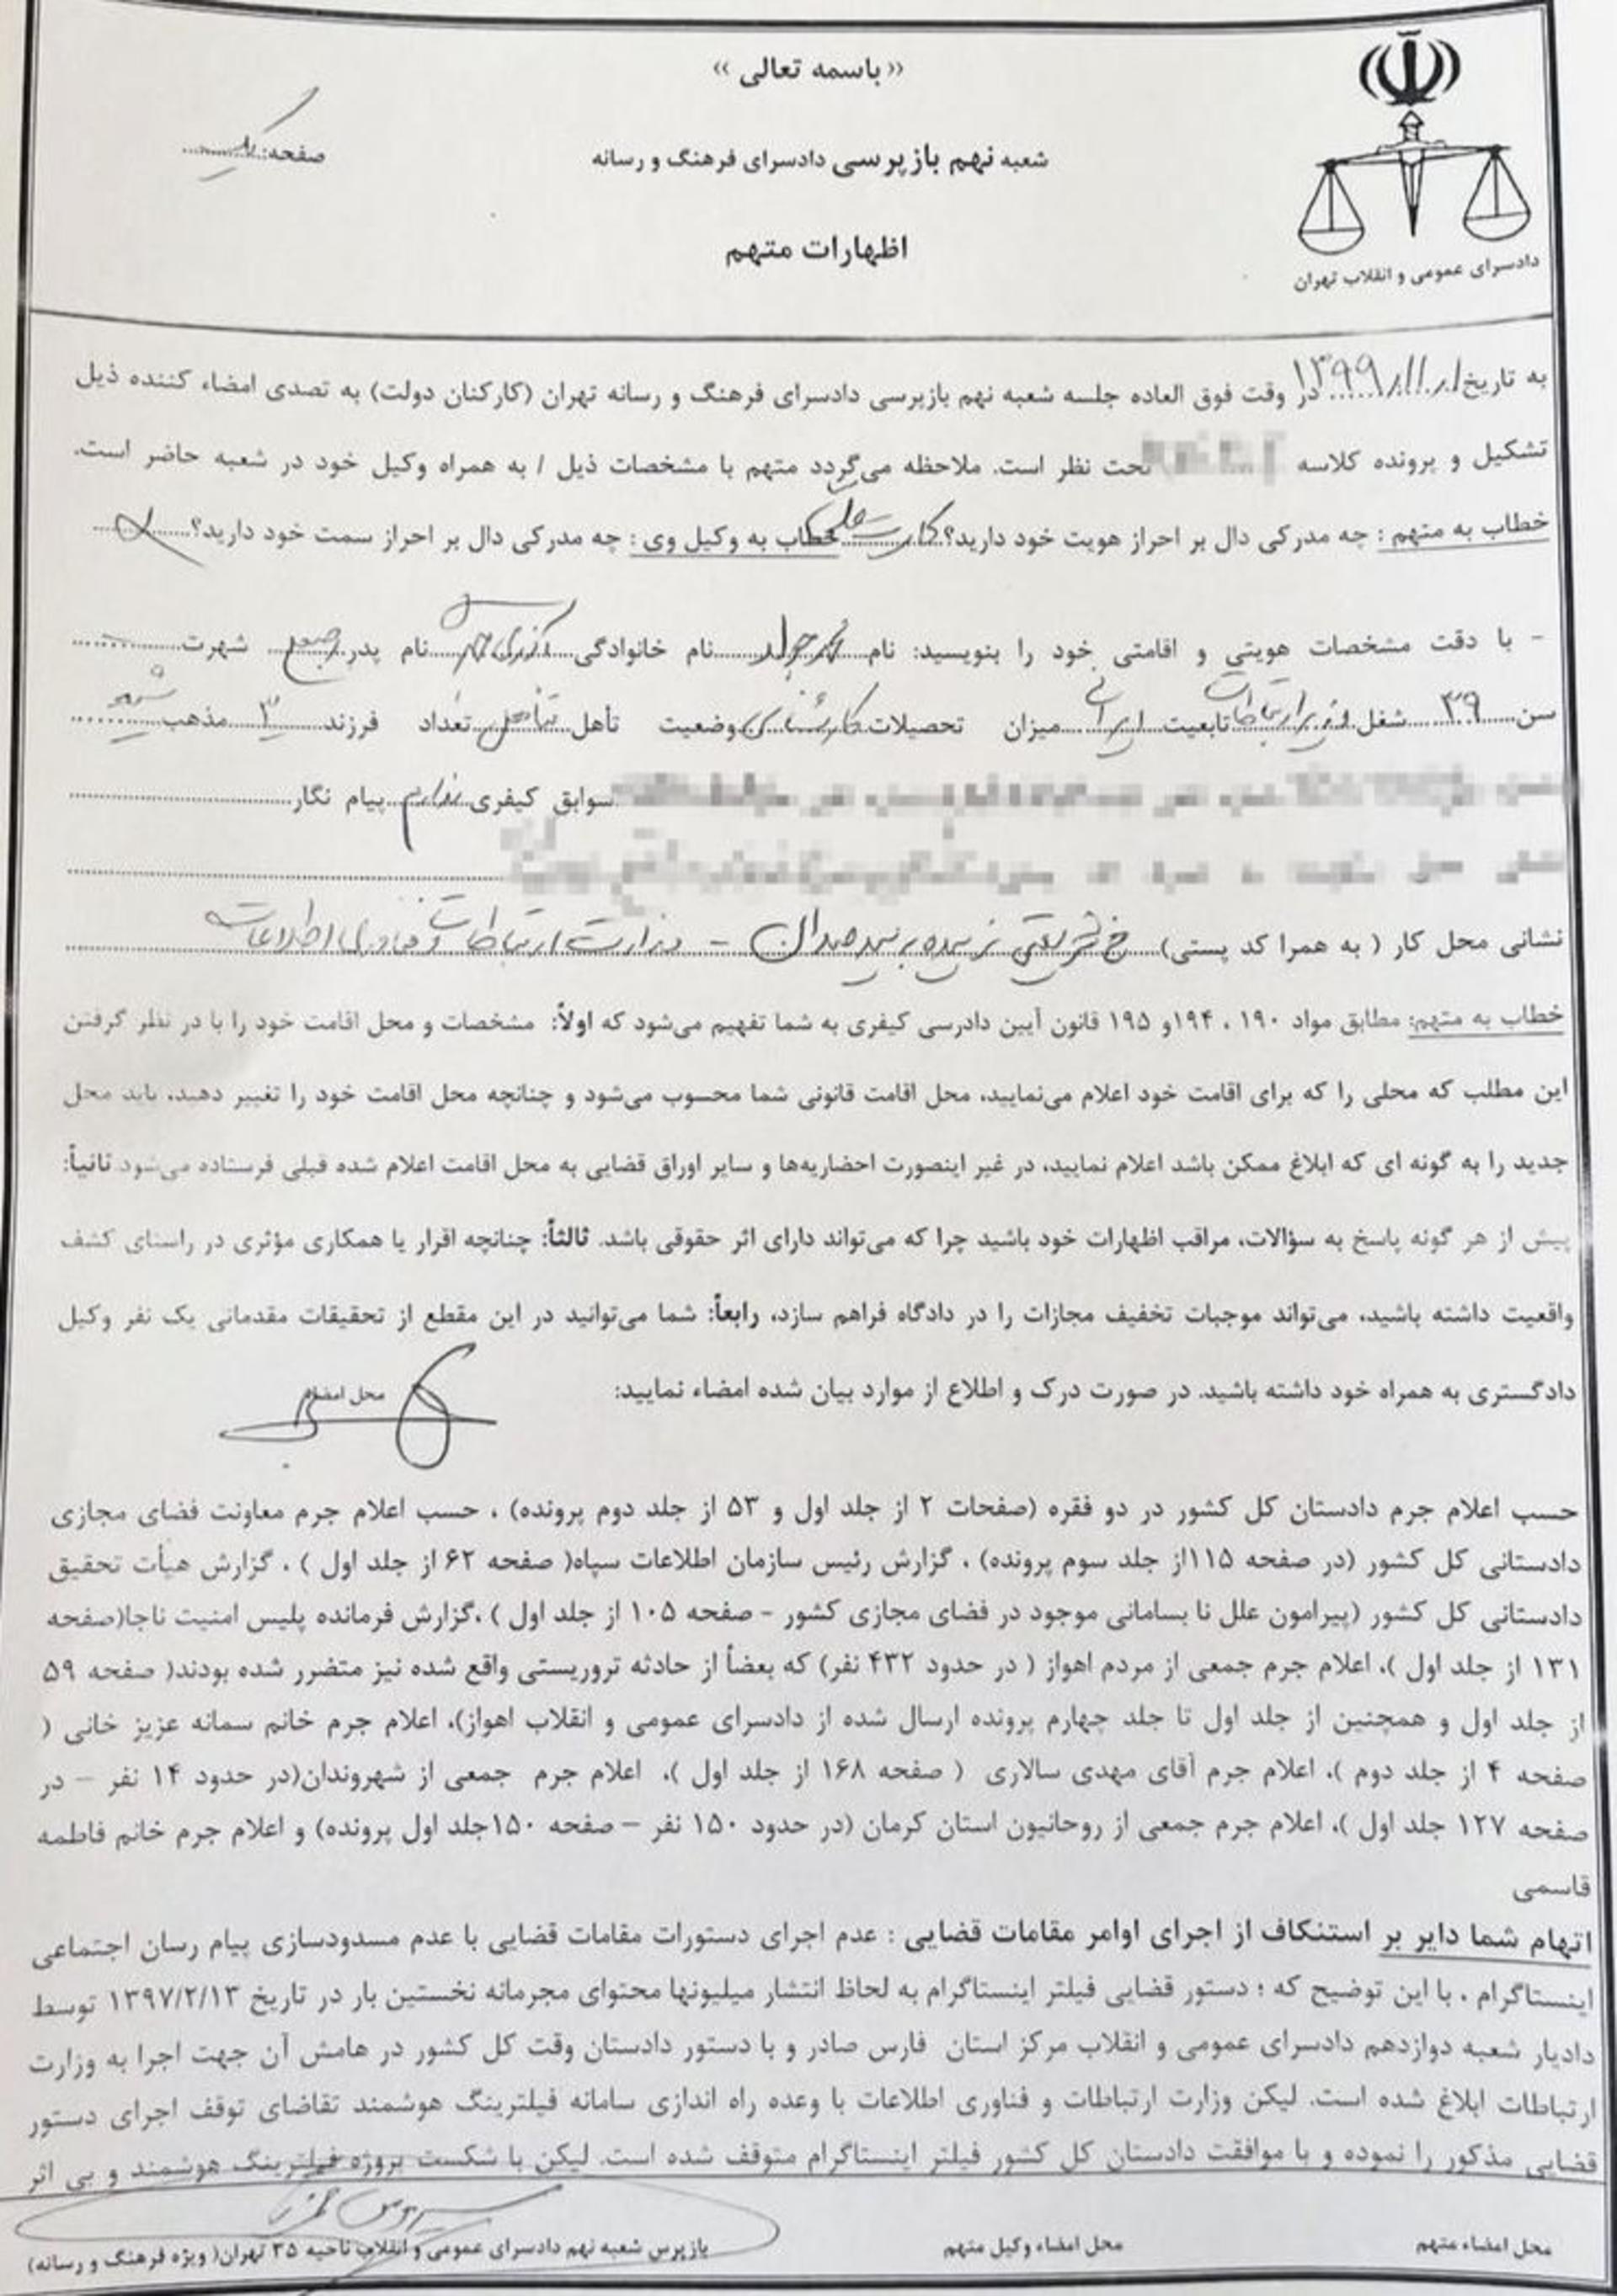 «باسمه تعالی»
شعبه نهم بازپرسی دادسرای فرهنگ و رسانه
صفحه: یک
اظهارات متهم
دادسرای عمومی و انقلاب تهران
به تاریخ ۱۳۹۹/۱۱/۱ در وقت فوق العاده جلسه شعبه نهم بازپرسی دادسرای فرهنگ و رسانه تهران (کارکنان دولت) به تصدی امضاء کننده ذیل
تشکیل و پرونده کلاسه تحت نظر است. ملاحظه می‌گردد متهم با مشخصات ذیل / به همراه وکیل خود در شعبه حاضر است.
خطاب به متهم : چه مدرکی دال بر احراز هویت خود دارید؟ کارت ملی خطاب به وکیل وی : چه مدرکی دال بر احراز سمت خود دارید؟
- با دقت مشخصات هویتی و اقامتی خود را بنویسید: نام محمد جواد نام خانوادگی آذری جهرمی نام پدر شهرت
سن ۳۹ شغل وزیر ارتباطات تابعیت ایرانی میزان تحصیلات کارشناسی وضعیت تأهل متأهل تعداد فرزند ۳ مذهب شیعه
سوابق کیفری ندارم پیام نگار
نشانی محل کار ( به همرا کد پستی) خ شریعتی نرسیده به پل سیدخندان - وزارت ارتباطات و فناوری اطلاعات
خطاب به متهم: مطابق مواد ۱۹۰ ، ۱۹۴و ۱۹۵ قانون آیین دادرسی کیفری به شما تفهیم می‌شود که اولاً: مشخصات و محل اقامت خود را با در نظر گرفتن
این مطلب که محلی را که برای اقامت خود اعلام می‌نمایید، محل اقامت قانونی شما محسوب می‌شود و چنانچه محل اقامت خود را تغییر دهید، باید محل
جدید را به گونه ای که ابلاغ ممکن باشد اعلام نمایید، در غیر اینصورت احضاریه‌ها و سایر اوراق قضایی به محل اقامت اعلام شده قبلی فرستاده می‌شود ثانیاً:
پیش از هر گونه پاسخ به سؤالات، مراقب اظهارات خود باشید چرا که می‌تواند دارای اثر حقوقی باشد. ثالثاً: چنانچه اقرار یا همکاری مؤثری در راستای کشف
واقعیت داشته باشید، می‌تواند موجبات تخفیف مجازات را در دادگاه فراهم سازد، رابعاً: شما می‌توانید در این مقطع از تحقیقات مقدماتی یک نفر وکیل
دادگستری به همراه خود داشته باشید. در صورت درک و اطلاع از موارد بیان شده امضاء نمایید: محل امضاء
حسب اعلام جرم دادستان کل کشور در دو فقره (صفحات ۲ از جلد اول و ۵۳ از جلد دوم پرونده) ، حسب اعلام جرم معاونت فضای مجازی
دادستانی کل کشور (در صفحه ۱۱۵از جلد سوم پرونده) ، گزارش رئیس سازمان اطلاعات سپاه( صفحه ۶۲ از جلد اول ) ، گزارش هیأت تحقیق
دادستانی کل کشور (پیرامون علل نا بسامانی موجود در فضای مجازی کشور - صفحه ۱۰۵ از جلد اول ) ،گزارش فرمانده پلیس امنیت ناجا(صفحه
۱۳۱ از جلد اول )، اعلام جرم جمعی از مردم اهواز ( در حدود ۴۳۲ نفر) که بعضاً از حادثه تروریستی واقع شده نیز متضرر شده بودند( صفحه ۵۹
از جلد اول و همچنین از جلد اول تا جلد چهارم پرونده ارسال شده از دادسرای عمومی و انقلاب اهواز)، اعلام جرم خانم سمانه عزیز خانی (
صفحه ۴ از جلد دوم )، اعلام جرم آقای مهدی سالاری ( صفحه ۱۶۸ از جلد اول )، اعلام جرم جمعی از شهروندان(در حدود ۱۴ نفر – در
صفحه ۱۲۷ جلد اول )، اعلام جرم جمعی از روحانیون استان کرمان (در حدود ۱۵۰ نفر – صفحه ۱۵۰جلد اول پرونده) و اعلام جرم خانم فاطمه
قاسمی
اتهام شما دایر بر استنکاف از اجرای اوامر مقامات قضایی : عدم اجرای دستورات مقامات قضایی با عدم مسدودسازی پیام رسان اجتماعی
اینستاگرام ، با این توضیح که ؛ دستور قضایی فیلتر اینستاگرام به لحاظ انتشار میلیونها محتوای مجرمانه نخستین بار در تاریخ ۱۳۹۷/۲/۱۳ توسط
دادیار شعبه دوازدهم دادسرای عمومی و انقلاب مرکز استان فارس صادر و با دستور دادستان وقت کل کشور در هامش آن جهت اجرا به وزارت
ارتباطات ابلاغ شده است. لیکن وزارت ارتباطات و فناوری اطلاعات با وعده راه اندازی سامانه فیلترینگ هوشمند تقاضای توقف اجرای دستور
قضایی مذکور را نموده و با موافقت دادستان کل کشور فیلتر اینستاگرام متوقف شده است. لیکن با شکست پروژه فیلترینگ هوشمند و بی اثر
محل امضاء متهم
محل امضاء وکیل متهم
بازپرس شعبه نهم دادسرای عمومی و انقلاب ناحیه ۳۵ تهران( ویژه فرهنگ و رسانه)